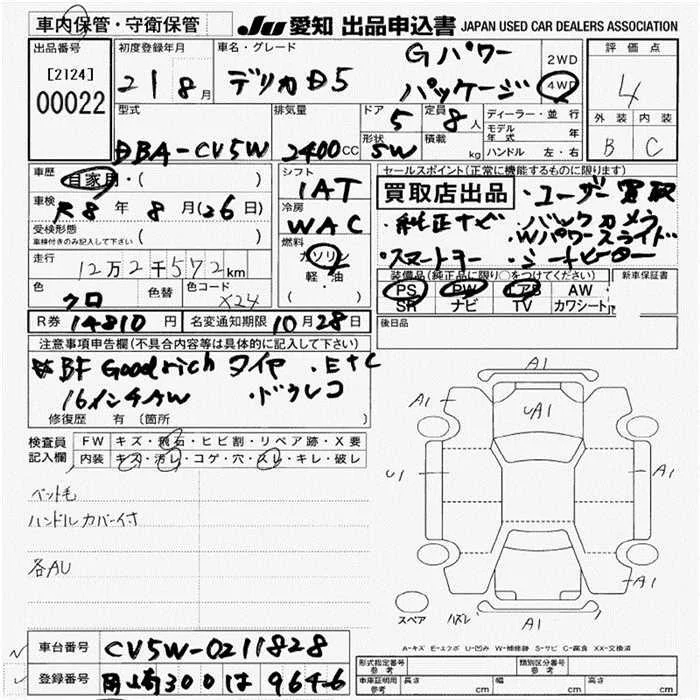 車内保管・守衛保管
JU 愛知 出品申込書 JAPAN USED CAR DEALERS ASSOCIATION
出品番号
[2124]
00022
初度登録年月
21 8月
車名・グレード
デリカD5
Gパワー
パッケージ
2WD
4WD
評価点
4
外装 内装
B C
型式
DBA-CV5W
排気量
2400CC
ドア
5
定員
8人
形状
5W
積載
kg
ディーラー・並行
モデル年式 年
ハンドル 左・右
車歴
自家用・( )
車検
R8年8月(26日)
受検形態
車検付きのみ記入して下さい ( )
走行
12万2千572km
色
クロ
色替
色コード
X24
シフト
1AT
冷房
WAC
燃料
ガソリン
軽・油
( )
セールスポイント(正常に機能するものに限ります)
買取店出品 ・ユーザー買取
・純正ナビ ・バックカメラ
・Wパワースライド
・スマートキー ・シートヒーター
装備品(純正品に限り○をつけてください)
新車保証書
PS PW エアB AW
SR ナビ TV カワシート
後日品
R券 14810円
名変通知期限 10月28日
注意事項申告欄(不具合内容等は具体的に記入して下さい)
※BF Goodrich タイヤ ・ETC
16インチAW ・ドラレコ
修復歴 有 〔箇所
検査員記入欄
FW キズ・飛石・ヒビ割・リペア跡・X要
内装 キズ・汚レ・コゲ・穴・スレ・キレ・破レ
ペット毛
ハンドルカバー付
各AU
A1
A1
UA1
U1
A1
A1
スペア
ハズレ
A1
A-キズ E-エクボ U-凹み W-補修跡 S-サビ C-腐食 XX-交換済
車台番号
CV5W-0211828
登録番号
岡崎300は9646
形式指定番号 参考
類別区分番号 参考
車庫証明用 参考
長さ cm 幅 cm 高さ cm